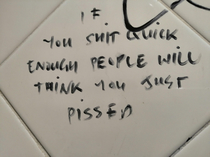 IF
YOU SHIT QUICK
ENOUGH PEOPLE WILL
THINK YOU JUST
PISSED